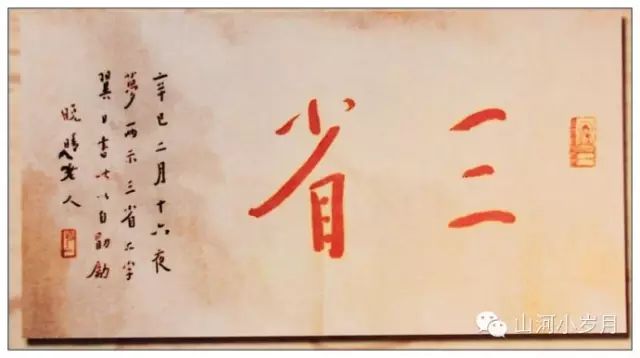 三省
辛巳二月十六夜
夢而示三省大字
翼日書此以自勖勵
晚晴老人
山河小岁月